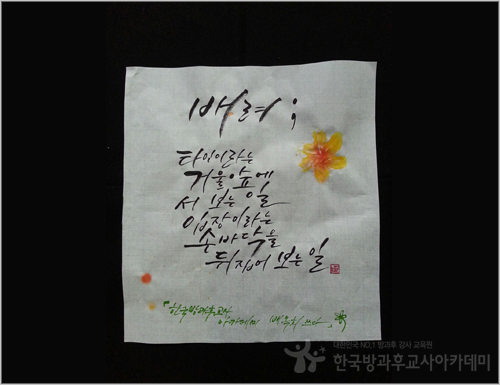 배려;
타인이라는
거울앞에
서 보는 일
입장이라는
손바닥을
뒤집어 보는 일
한국방과후교사
아카데미 배옥희 쓰다
대한민국 NO.1 방과후 강사 교육원
한국방과후교사아카데미